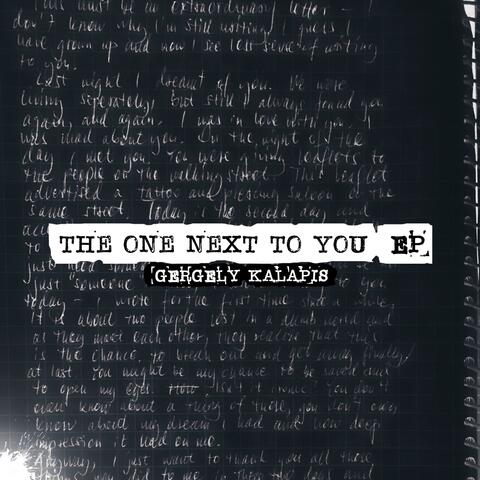 This must be an extraordinary letter – I
don't know why I'm still writing. I guess I
have grown up and now I see less sense of writing
to you.
Last night I dreamt of you. We were
living seperately, but still I always found you
again, and again. I was in love with you. I
was mad about you. On the night of the
day I met you. You were giving leaflets to
the people on the walking street. This leaflet
advertised a tattoo and piercing saloon on the
same street. Today is the second day and
to
THE ONE NEXT TO YOU EP
GERGELY KALAPIS
just need
just "someone
today – I wrote for the first time since a while,
it is about two people lost in a dumb world and
as they meet each other, they realise that this
is the chance, to break out and get away finally,
at last. You might be my chance to be saved and
to open my eyes. Isn't it ironic? You don't
even know about a thing of these, you don't even
know about my dream I had and how deep
impression it had on me.
Anyway, I just want to thank you all those
you did to me in these two days and